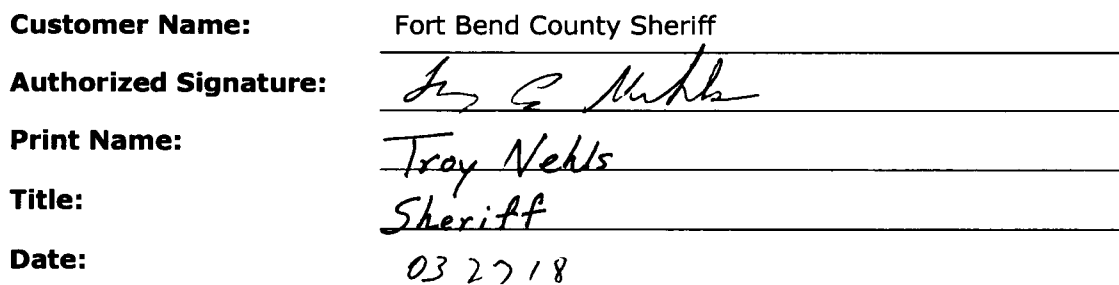 Customer Name: Fort Bend County Sheriff
Authorized Signature: Troy E Nehls
Print Name: Troy Nehls
Title: Sheriff
Date: 03 27 18